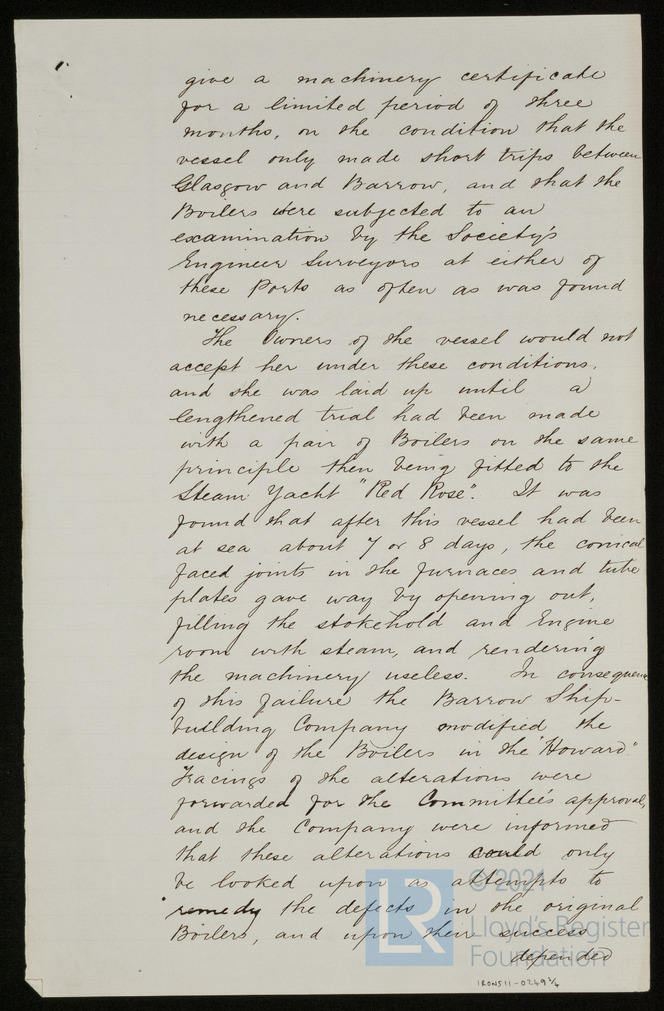 give a machinery certificate
for a limited period of three
months, on the condition that the
vessel only made short trips between
Glasgow and Barrow, and that the
Boilers were subjected to an
examination by the Society's
Engineer Surveyors at either of
these Ports as often as was found
necessary.
The Owners of the vessel would not
accept her under these conditions,
and she was laid up until a
lengthened trial had been made
with a pair of Boilers on the same
principle then being fitted to the
Steam Yacht "Red Rose". It was
found that after this vessel had been
at sea about 7 or 8 days, the conical
faced joints in the furnaces and tube
plates gave way by opening out,
filling the stokehold and Engine
room with steam, and rendering
the machinery useless. In consequence
of this failure the Barrow Ship-
building Company modified the
design of the Boilers in the "Howard"
Tracings of the alterations were
forwarded for the Committee's approval,
and the Company were informed
that these alterations could only
be looked upon as attempts to
remedy the defects in the original
Boilers, and upon their success
depended
LR
© 2021
Lloyd's Register
Foundation
IRON511-0249 2/4